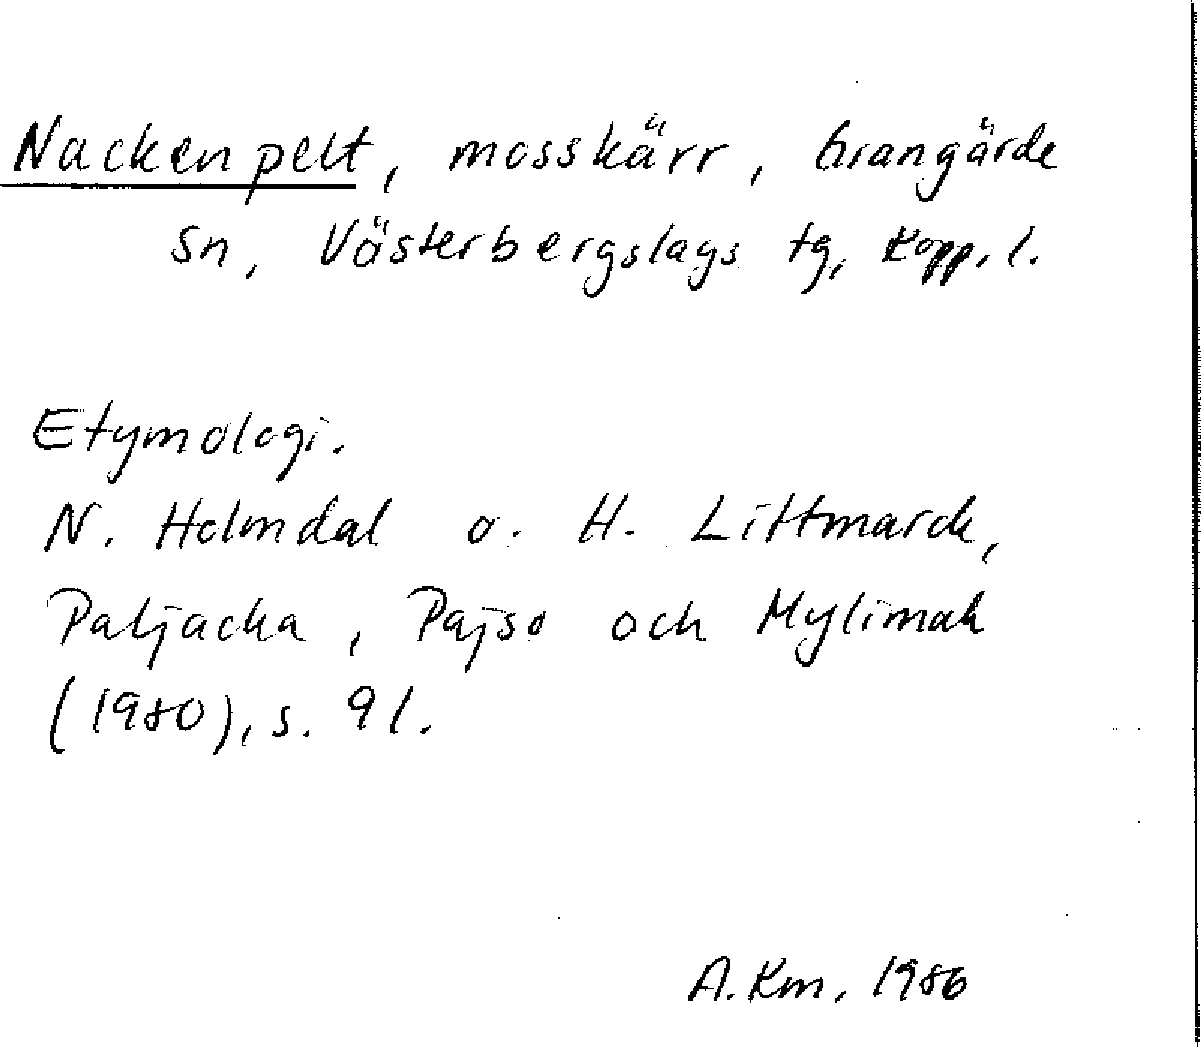 Nackenpelt, mosskärr, Grangärde
sn, Västerbergslags tg, Kopp. l.
Etymologi.
N. Holmdal o. H. Littmarck,
Patjacka, Pajso och Mylimak
(1980), s. 91.
A. Km, 1986